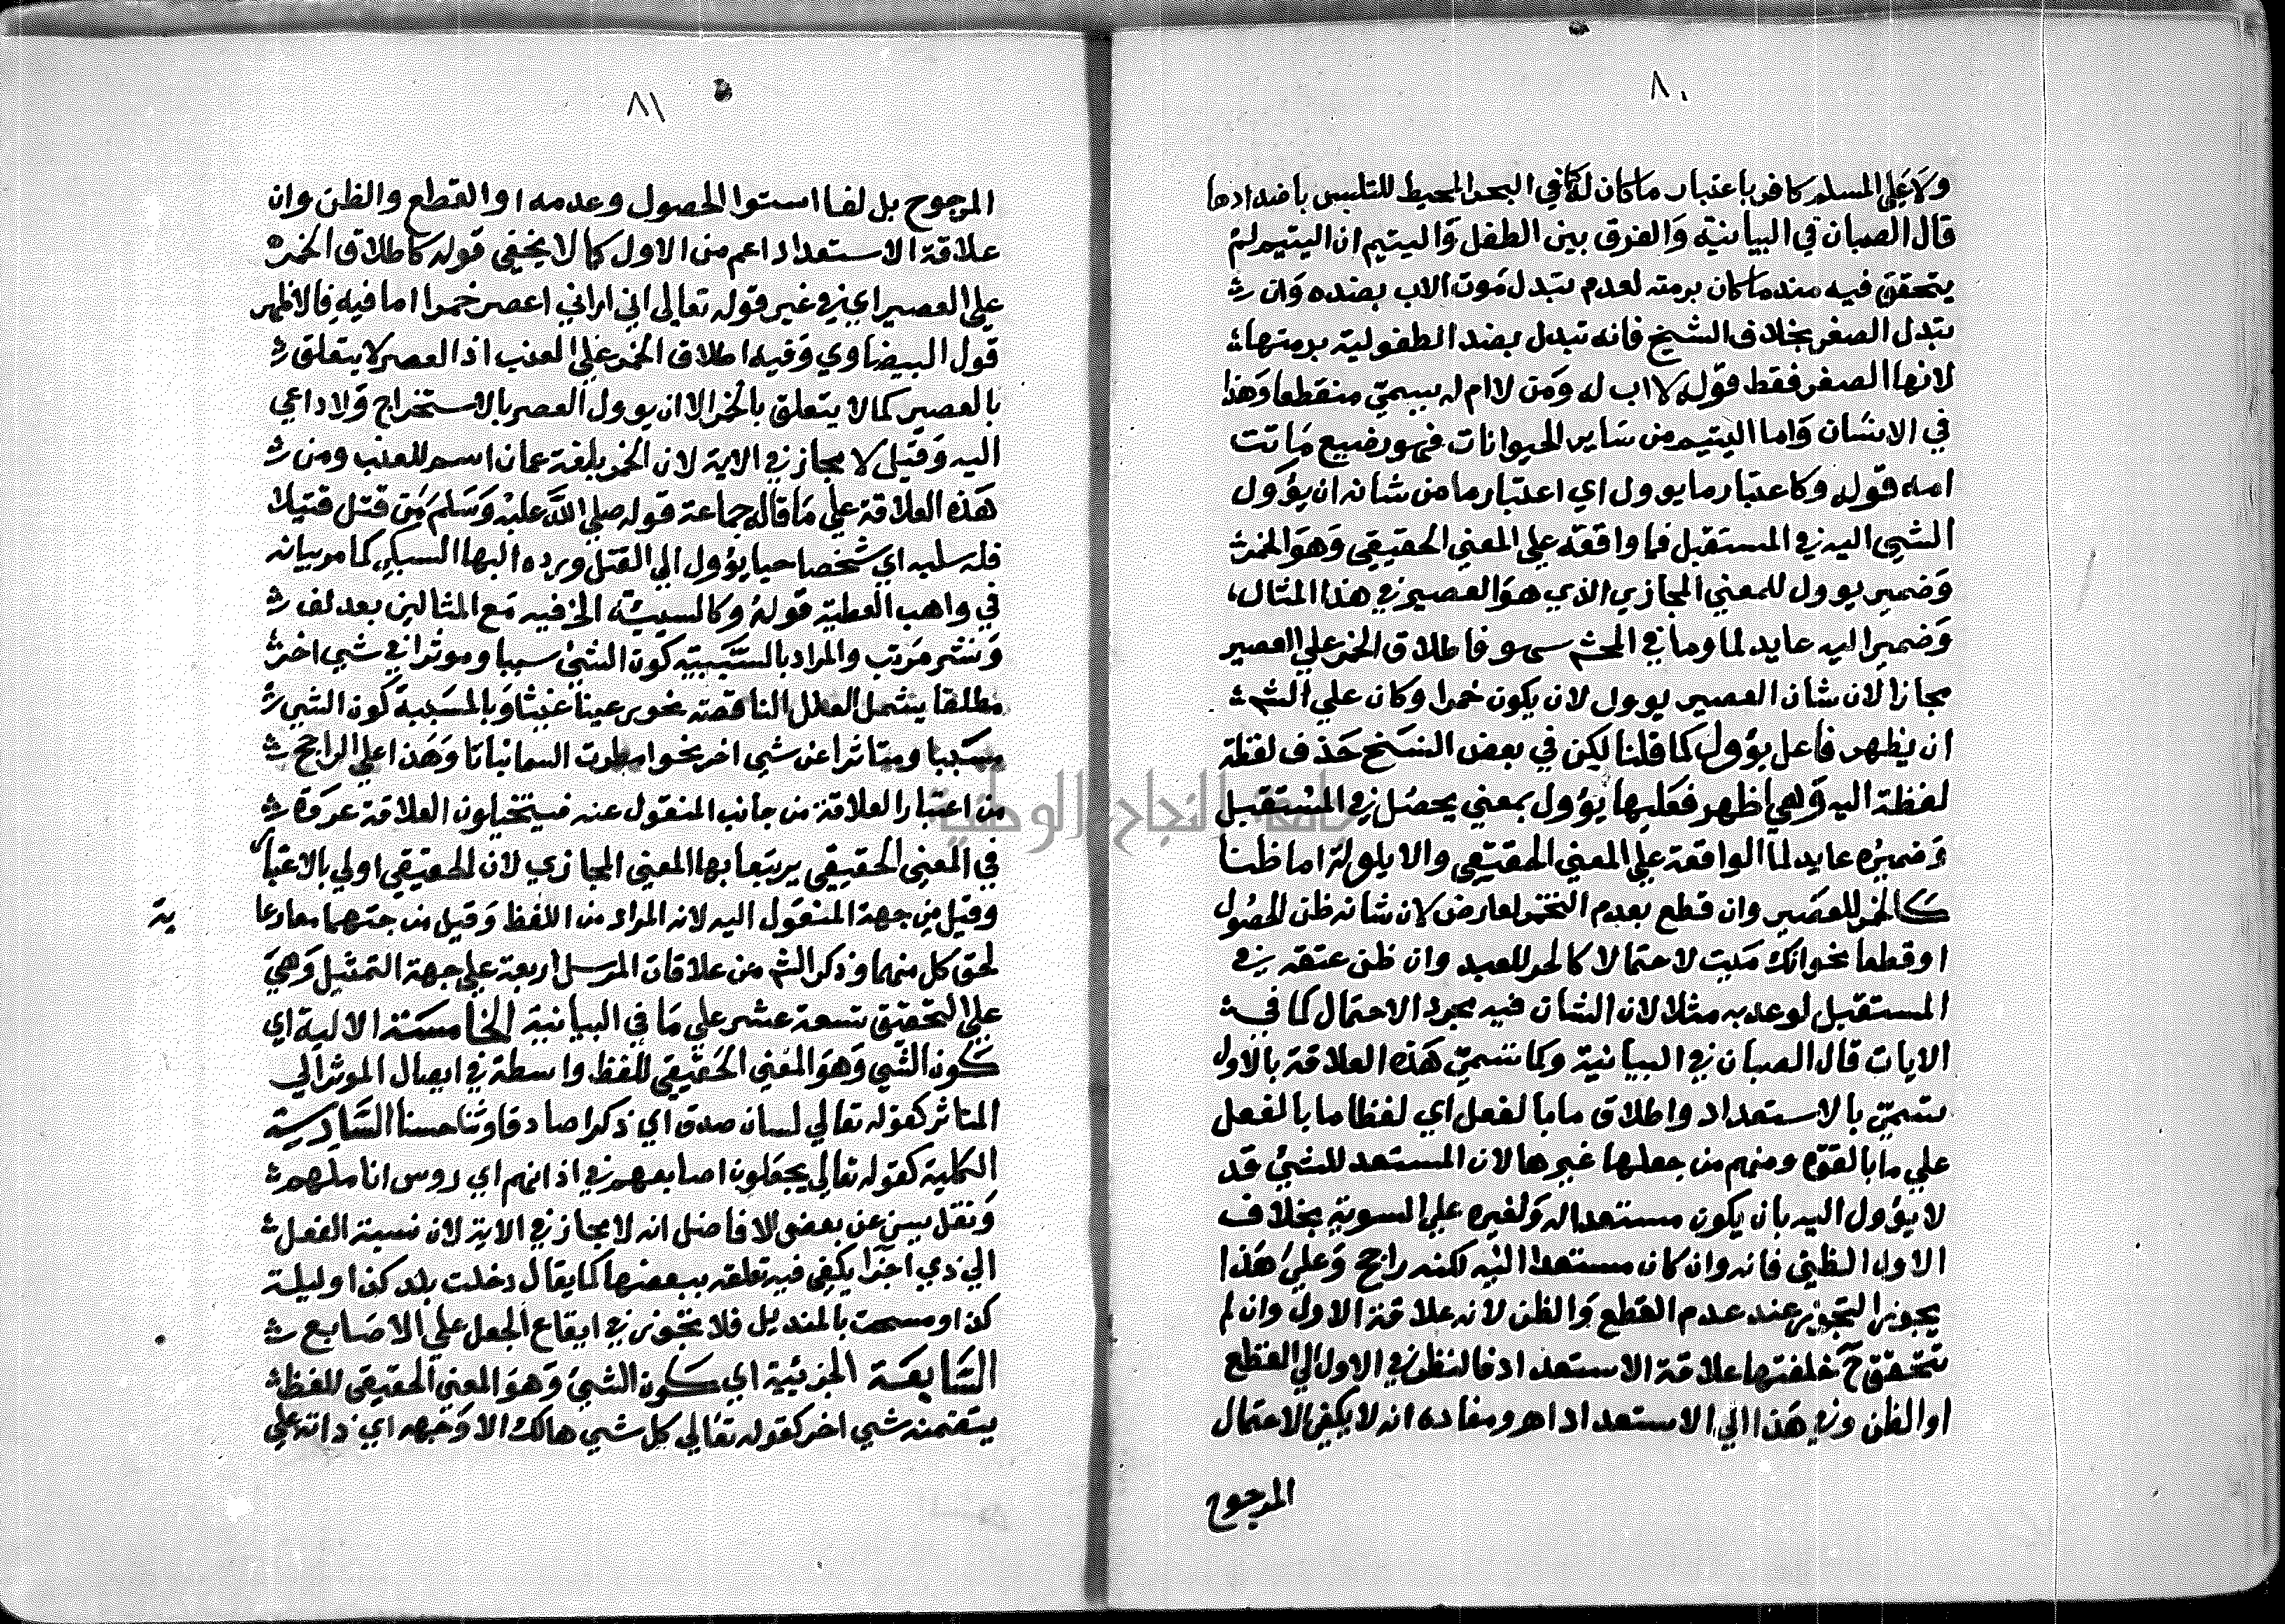 ٨٠
ولا على المسلم كافر باعتبار ما كان له كما في البحر المحيط للتلبس باضدادها
قال الصبان في البيانية والفرق بين الطفل واليتيم ان اليتيم لم
يتحقق فيه ضد ما كان برمته لعدم تبدل موت الاب بضده وان
تبدل الصغر بخلاف الشيخ فانه تبدل بضد الطفولية برمتها
لانها الصغر فقط قوله لا اب له ومن لا ام له يسمي منقطعا وهذا
في الانسان واما اليتيم من ساير الحيوانات فهو رضيع ماتت
امه قوله وكاعتبار ما يوول اي اعتبار ما من شانه ان يؤول
الشي اليه في المستقبل فما واقعه علي المعني الحقيقي وهو الخمر
وضمير يوول للمعني المجازي الذي هو العصير في هذا المثال
وضمير اليه عايد لما وما في المحشم سهو فاطلاق الخمر علي العصير
مجازا لان شان العصير يوول لان يكون خمرا وكان علي الشم
ان يظهر فاعل يؤول كما قلنا لكن في بعض النسخ حذف لفظة
لفظة اليه وهي اظهر فعليها يؤول بمعني يحصل في المستقبل
وضميره عايد لما الواقعة علي المعني الحقيقي والايلولة اما ظنا
كالخمر للعصير وان قطع بعدم التخمر لعارض لان شانه ظن الحصول
او قطعا نحو انك ميت لا احتمالا كالحر للعبد وان ظن عتقه في
المستقبل لوعد به مثلا لان الشان فيه مجرد الاحتمال كما في
الايات قال الصبان في البيانية وكما تسمي هذه العلاقة بالاول
تسمي بالاستعداد واطلاق ما بالفعل اي لفظ ما بالفعل
علي ما بالقوة ومنهم من جعلها غيرها لان المستعد للشي قد
لا يؤول اليه بان يكون مستعدا له ولغيره علي السوية بخلاف
الاول الظني فانه وان كان مستعدا اليه لكنه راجح وعلي هذا
يجوز التجوز عند عدم القطع والظن لانه علاقة الاول وان لم
تتحقق ح خلفتها علاقة الاستعداد فالنظر في الاول الي القطع
او الظن وفي هذا الي الاستعداد اهر ومفاده انه لا يكفي الاحتمال
المرجوح
٨١
المرجوح بل لغا استوا الحصول وعدمه او القطع والظن وان
علاقة الاستعداد اعم من الاول كما لا يخفي قوله كاطلاق الخمر
علي العصير اي في غير قوله تعالي اني اراني اعصر خمرا اما فيه فالاظهر
قول البيضاوي وفيه اطلاق الخمر علي العنب اذ العصر لا يتعلق
بالعصير كما لا يتعلق بالخمر الا ان يوول العصر بالاستخراج ولا داعي
اليه وقيل لا مجاز في الاية لان الخمر بلغة عمان اسم للعنب ومن
هذه العلاقة علي ما قاله جماعة قوله صلي الله عليه وسلم من قتل قتيلا
فله سلبه اي شخصا حيا يؤول الي القتل ورده البها السبكي كما مر بيانه
في واهب العطية قوله وكالسببية الخ فيه مع المثالين بعد لف
ونشر مرتب والمراد بالسببية كون الشي سببا وموثرا في شي اخر
مطلقا يشمل العلل الناقصة نحو رعينا غيثا وبالمسببية كون الشي
مسببا ومتاثرا عن شي اخر نحو امطرت السما نباتا وهذا علي الراجح
من اعتبار العلاقة من جانب المنقول عنه فيتخيلون العلاقة عروة
في المعني الحقيقي يربتعا بها المعني المجازي لان الحقيقي اولي بالاعتبار
وقيل من جهة المنقول اليه لانه المراد من اللفظ وقيل من جهتهما معا رعا
ية
لحق كل منهما وذكر الشم من علاقات المرسل اربعة علي جهة التمثيل وهي
علي التحقيق تسعة عشر علي ما في البيانية الخامسة الالية اي
كون الشي وهو المعني الحقيقي للفظ واسطة في ايصال الموثر الي
المتاثر كقوله تعالي لسان صدق اي ذكرا صادقا وثنا حسنا السادسة
الكلية كقوله تعالي يجعلون اصابعهم في اذانهم اي روس اناملهم
ونقل يسن عن بعض الافاضل انه لا مجاز في الاية لان نسبة الفعل
الي ذي اجزا يكفي فيه تعلقه ببعضها كما يقال دخلت بلد كذا وليلة
كذا ومسحت بالمنديل فلا تجوز في ايقاع الجعل علي الاصابع
السابعة الجزئية اي كون الشي وهو المعني الحقيقي للفظ
يتضمنه شي اخر كقوله تعالي كل شي هالك الا وجهه اي ذاته علي